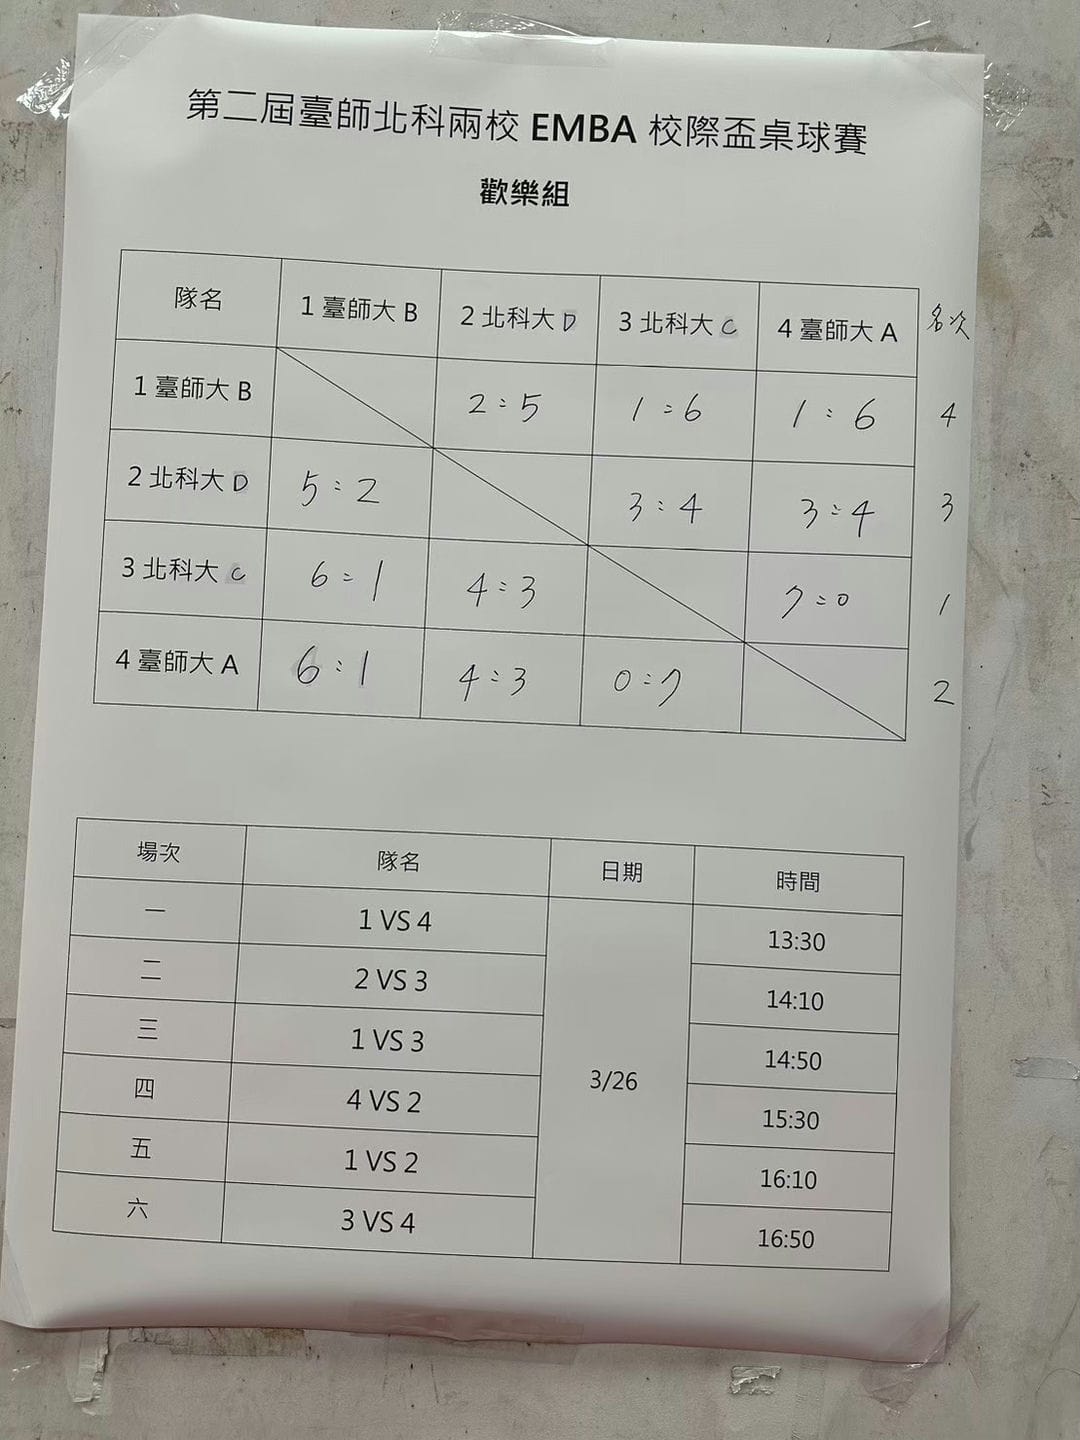 第二屆臺師北科兩校 EMBA 校際盃桌球賽
歡樂組
隊名 1 臺師大 B 2 北科大 D 3 北科大 C 4 臺師大 A 名次
1 臺師大 B 2:5 1:6 1:6 4
2 北科大 D 5:2 3:4 3:4 3
3 北科大 C 6:1 4:3 7:0 1
4 臺師大 A 6:1 4:3 0:7 2
場次 隊名 日期 時間
一 1 VS 4 13:30
二 2 VS 3 14:10
三 1 VS 3 14:50
四 4 VS 2 3/26 15:30
五 1 VS 2 16:10
六 3 VS 4 16:50